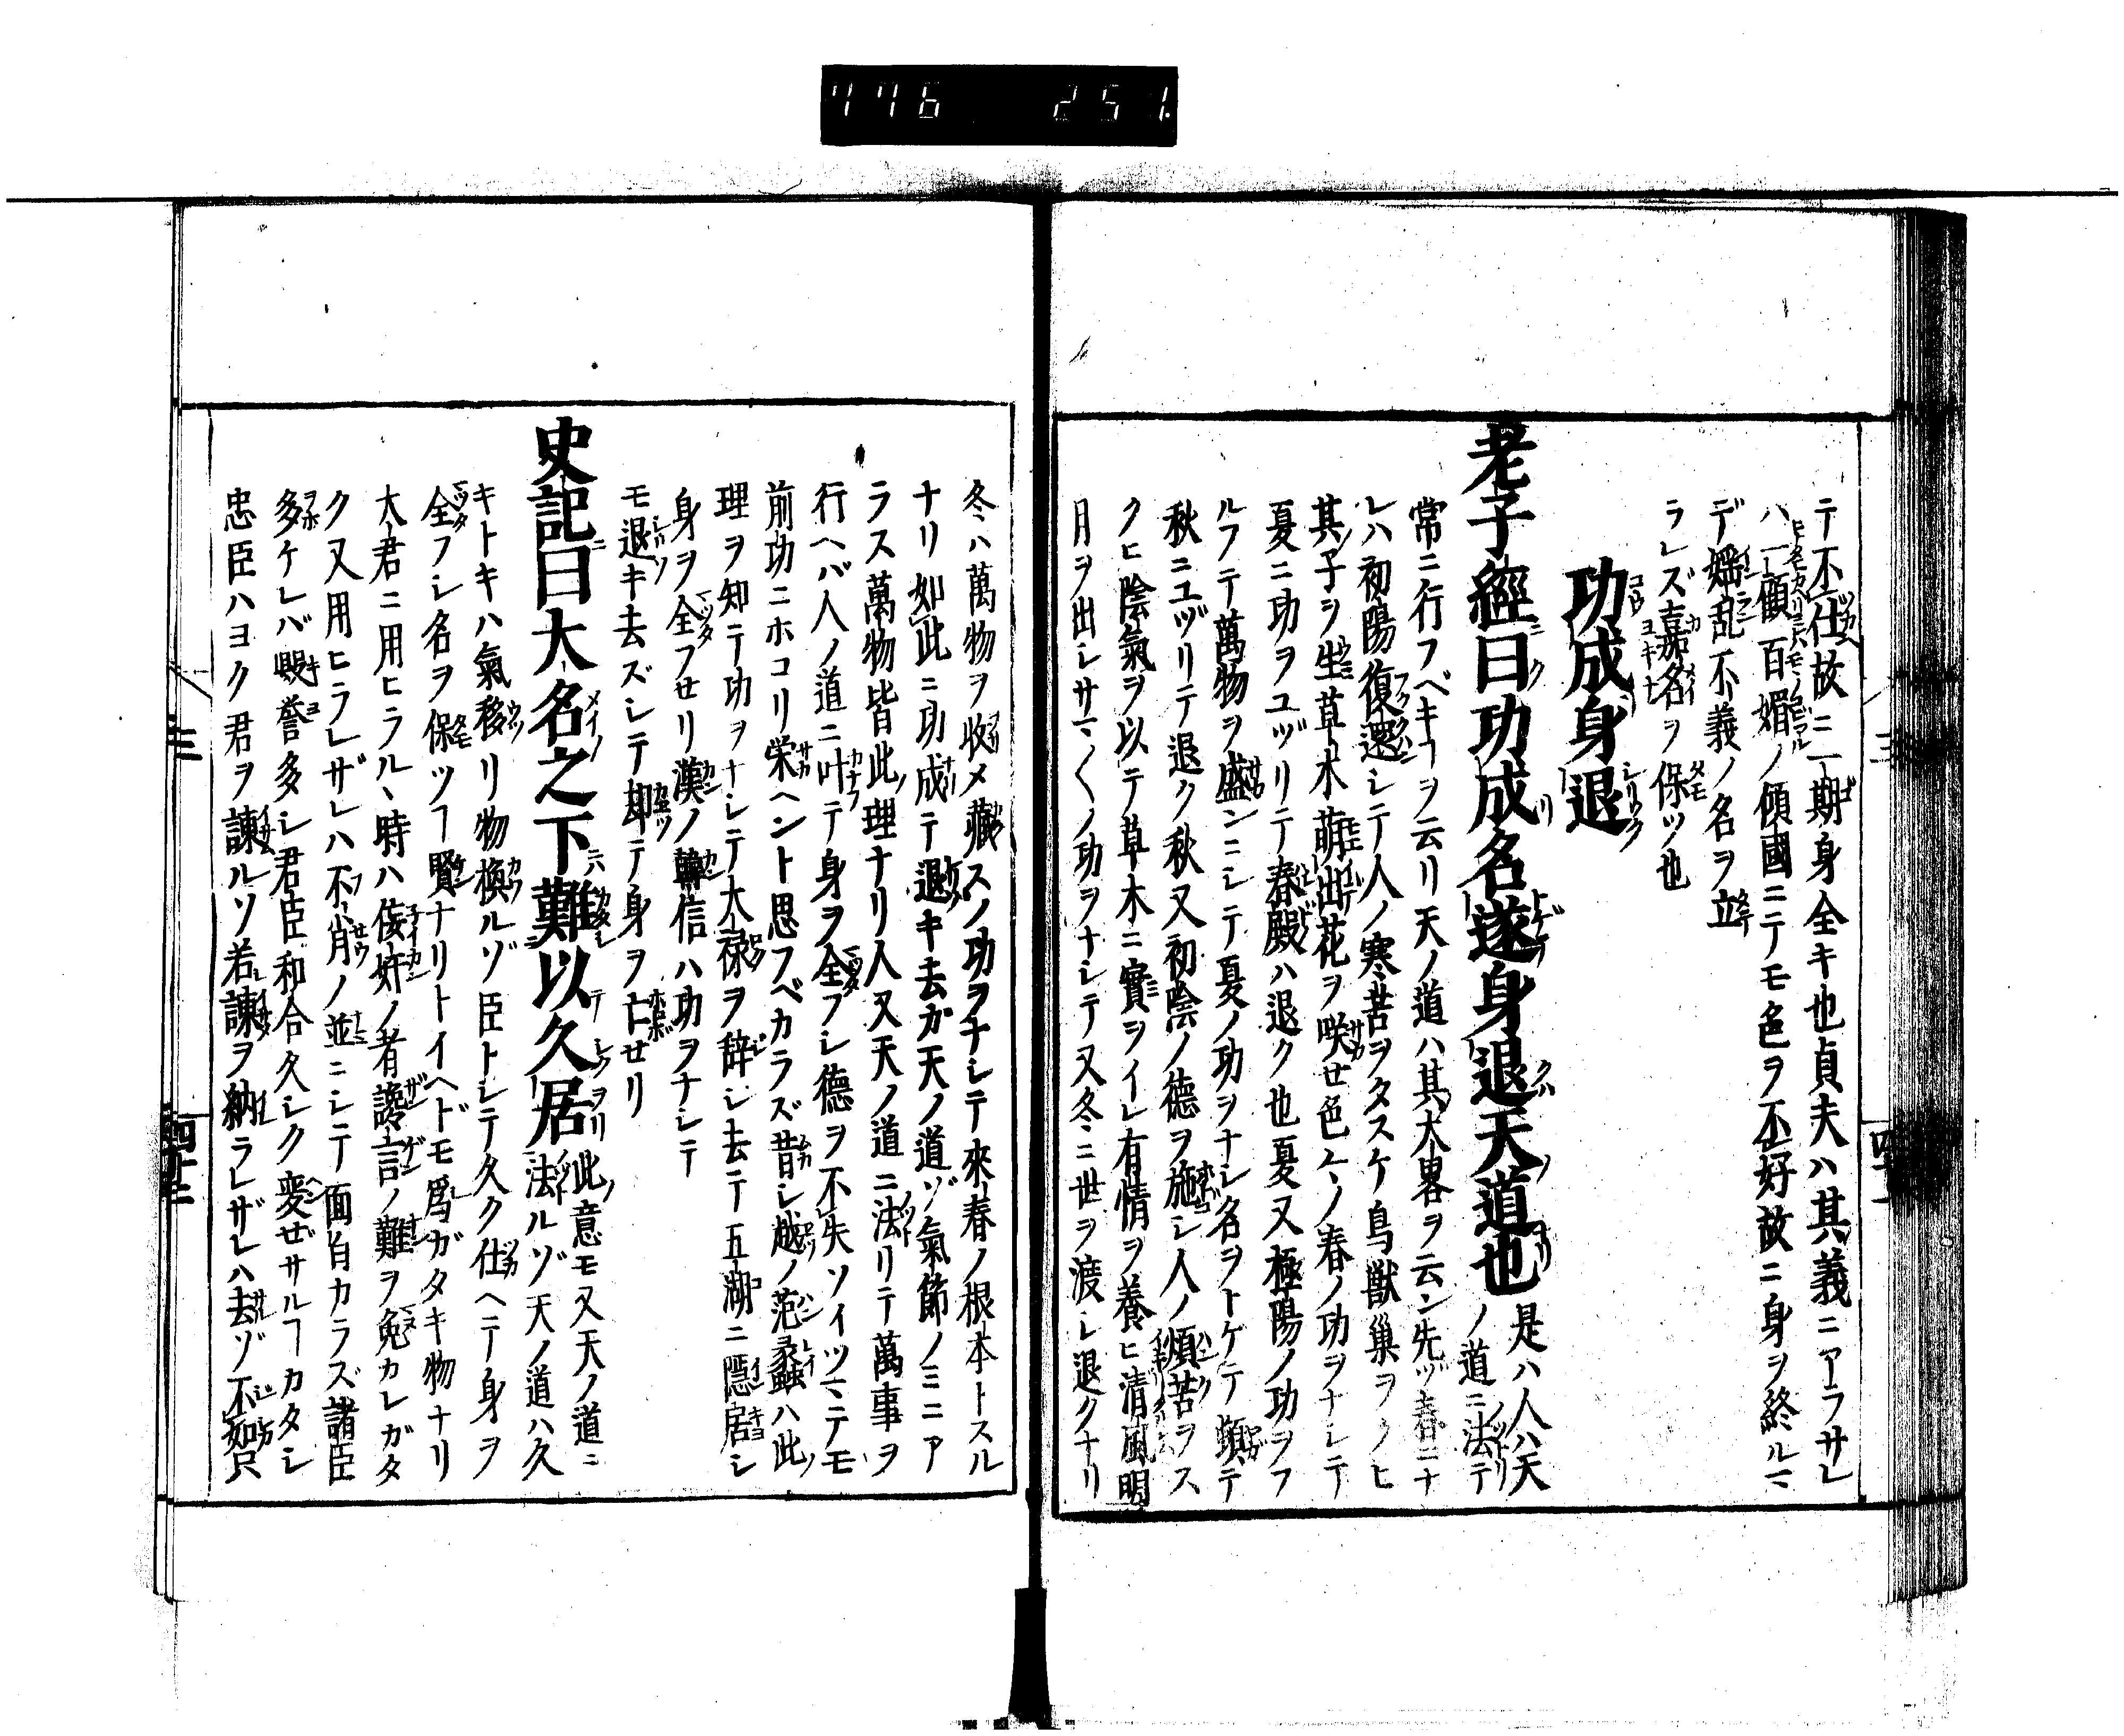 776 251.
テ不仕故ニ一期身全キ也貞夫ハ其義ニアラサレ
ハ一顧百媚ノ傾國ニテモ色ヲ不好故ニ身ヲ終ルマ
デ婬乱不義ノ名ヲ立
ラレズ嘉名ヲ保ツ也
功成身退
老子經曰功成名遂身退天道也
是ハ人ハ天
ノ道ニ法テ
常ニ行フベキヿヲ云リ天ノ道ハ其大畧ヲ云ン先ヅ春ニナ
レハ初陽復還シテ人ノ寒苦ヲタスケ鳥獣巣ヲクヒ
其子ヲ生草木萌出花ヲ咲せ色々ノ春ノ功ヲナシテ
夏ニ功ヲユヅリテ春殿ハ退ク也夏又極陽ノ功ヲフ
ルフテ萬物ヲ盛ンニシテ夏ノ功ヲナシ名ヲトゲテ頭テ
秋ニユヅリテ退ク秋又初陰ノ德ヲ施シ人ノ煩苦ヲス
クヒ陰氣ヲ以テ草木ニ實ヲイレ有情ヲ養ヒ清風明
月ヲ出シサマ〱ノ功ヲナシテ又冬ニ世ヲ渡シ退クナリ
冬ハ萬物ヲ收メ藏スノ功ヲナシテ來春ノ根本トスル
ナリ如此ニ功成テ退キ去カ天ノ道ゾ氣節ノミニア
ラス萬物皆此理ナリ人又天ノ道ニ法リテ萬事ヲ
行ヘバ人ノ道ニ叶テ身ヲ全フシ德ヲ不失ソイツマテモ
前功ニホコリ栄ヘント思フベカラズ昔シ越ノ范蠡ハ此
理ヲ知テ功ヲナシテ大禄ヲ辞シ去テ五湖ニ隠居シ
身ヲ全フせリ漢ノ韓信ハ功ヲナシテ
モ退キ去ズシテ却テ身ヲ亡せリ
史記曰大名之下難以久居
此意モ又天ノ道ニ
法ルゾ天ノ道ハ久
キトキハ氣移リ物換ルゾ臣トシテ久ク仕ヘテ身ヲ
全フシ名ヲ保ツヿ賢ナリトイヘドモ爲ガタキ物ナリ
大君ニ用ヒラルヽ時ハ佞奸ノ者讒言ノ難ヲ免カレガタ
ク又用ヒラレザレハ不肖ノ並ニシテ面白カラズ諸臣
多ケレバ毀誉多シ君臣和合久シク変ぜサルヿカタシ
忠臣ハヨク君ヲ諌ルソ若諌ヲ納ラレザレハ去ゾ不如只
三
四十二